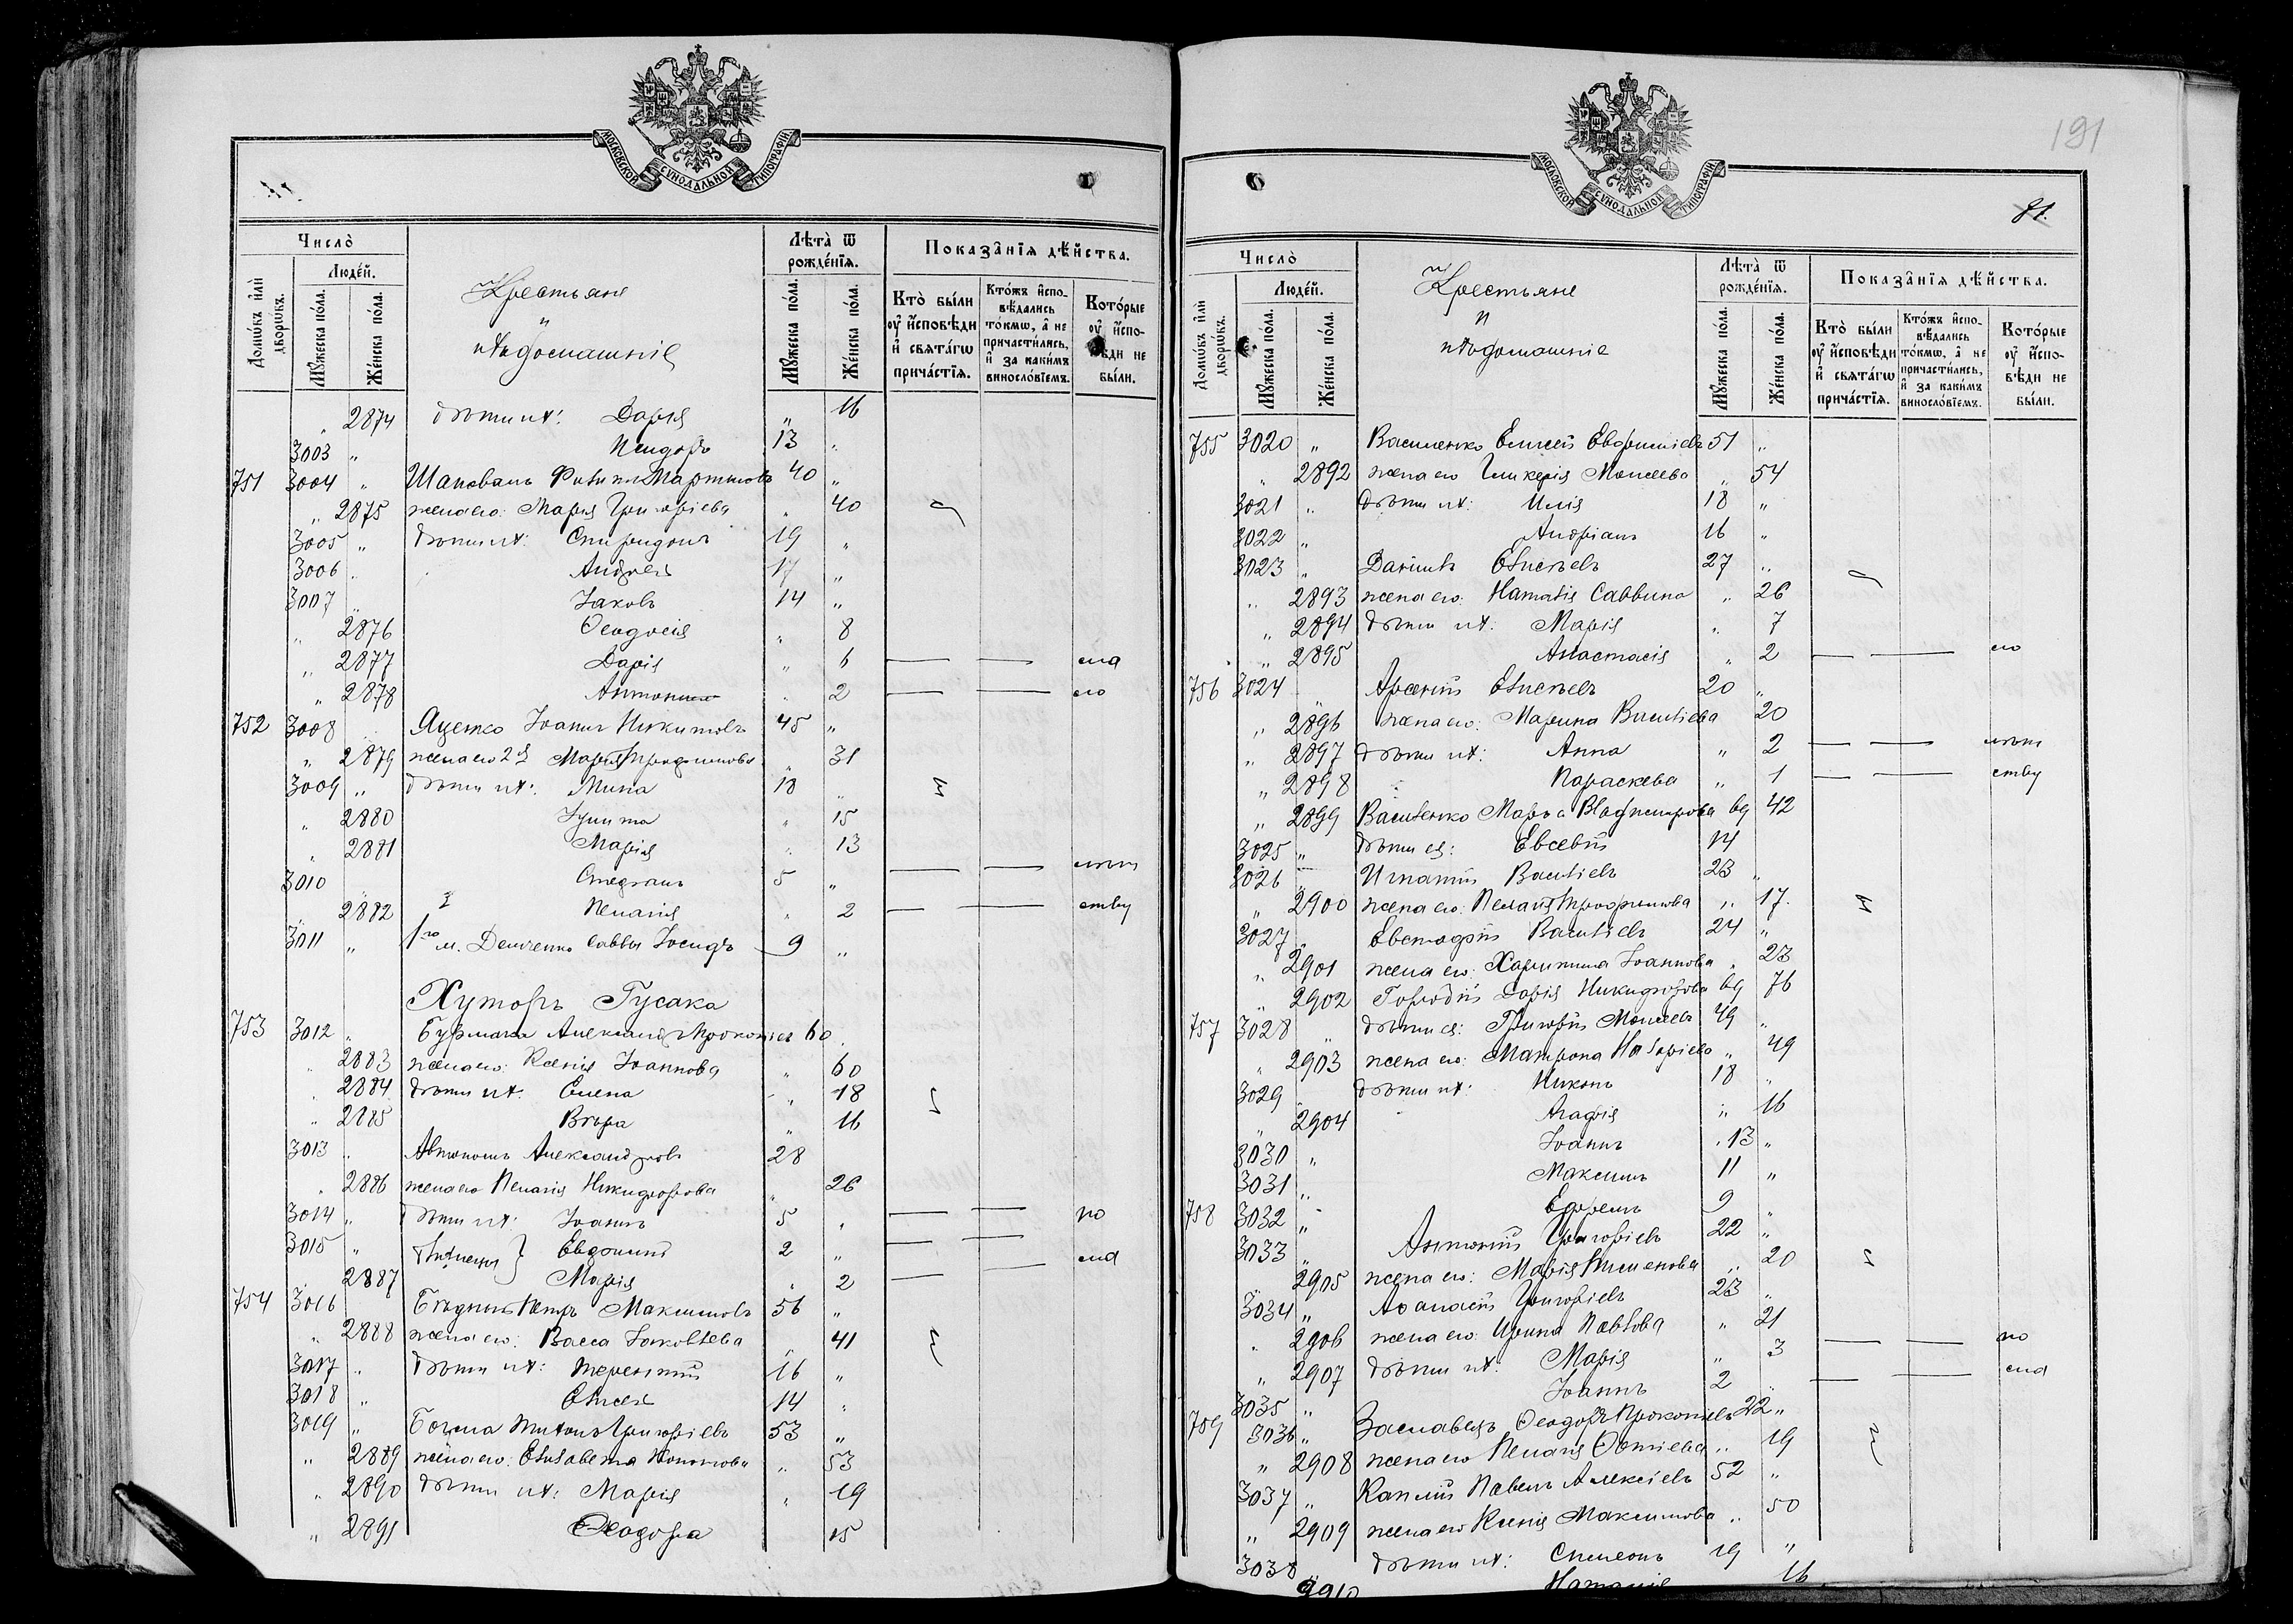 МОСКОВСКОЙ СѴНОДАЛЬНОЙ ТИПОГРАФІИ
Число̀
Люде́й.
Домѡ́въ и҆лѝ дворѡ́въ.
Мꙋ́жеска по́ла.
Же́нска по́ла.
Крестьяне
и
ихъ домашніе
Лѣ́та ѿ рожде́нїѧ.
Мꙋ́жеска по́ла.
Же́нска по́ла.
Показа̂нїѧ дѣ́йства.
Кто̀ бы́ли оу҆ и҆́сповѣди и҆ свѧта́гѡ прича́стїѧ.
Кто́жъ и҆спо-вѣ́дались то́кмѡ, а҆ не причасти́лись, и҆ за каки́мъ винosло́вїемъ.
Кото́рые оу҆ и҆́спо-вѣди не бы́ли.
" 2874 дѣти ихъ: Дарія " 16
3003 " Исидоръ 13 "
751 3004 " Шаповалъ Филиппъ Мартиновъ 40 "
" 2875 жена его: Марія Григоріева " 40
3005 " дѣти ихъ: Спиридонъ 19 "
3006 " Андрей 17 "
3007 " Іаковъ 14 "
" 2876 Ѳеодосія " 8
" 2877 Дарія " 6 — — ма
" 2878 Антонина " 2 — — ло
752 3008 Яценко Іоаннъ Никитовъ 45 "
" 2879 жена его 2я Марія Трофимова " 31
3009 " дѣти ихъ: Мина 18 "
" 2880 Іулита " 15
" 2881 Марія " 13
3010 Стефанъ 5 " — — лѣт
" 2882 Пелагія " 2 — — ству
3011 " 1го м. Демченко Саввы Іосифъ 9 "
Хуторъ Гусака
753 3012 " Бурлака Александръ Прокопіевъ 60
" 2883 жена его: Ксенія Іоаннова " 60
" 2884 дѣти ихъ: Елена " 18
" 2885 Вѣра " 16
3013 " Автономъ Александровъ 28
" 2886 жена его Пелагія Никифорова " 26
3014 " дѣти ихъ: Іоаннъ 5 " — — по
3015 " близнецы } Евфимій 2 " — —
" 2887 Марія " 2 — — мал
754 3016 Бѣдный Петръ Максимовъ 56 "
" 2888 жена его: Васса Іаковлева 41
3017 " дѣти ихъ: Терентій 16 "
3018 " Елисей 14 "
3019 " Бочка Титонъ Григоріевъ 53 "
" 2889 жена его: Елисавета Кононова " 53
" 2890 дѣти ихъ: Марія " 19
" 2891 Ѳеодора 15
191
81.
МОСКОВСКОЙ СѴНОДАЛЬНОЙ ТИПОГРАФІИ
Число̀
Люде́й.
Домѡ́въ и҆лѝ дворѡ́въ.
Мꙋ́жеска по́ла.
Же́нска по́ла.
Крестьяне
и
ихъ домашніе
Лѣ́та ѿ рожде́нїѧ.
Мꙋ́жеска по́ла.
Же́нска по́ла.
Показа̂нїѧ дѣ́йства.
Кто̀ бы́ли оу҆ и҆́сповѣди и҆ свѧта́гѡ прича́стїѧ.
Кто́жъ и҆спо-вѣ́дались то́кмѡ, а҆ не причасти́лись, и҆ за каки́мъ винosло́вїемъ.
Кото́рые оу҆ и҆́спо-вѣди не бы́ли.
755 3020 " Василенко Елисей Евфиміевъ 51 "
" 2892 жена его Гликерія Моисеева " 54
3021 " дѣти ихъ: Илія 18 "
3022 " Андріанъ 16 "
3023 " Даніилъ Елисѣевъ 27 "
" 2893 жена его: Наталія Саввина " 26
" 2894 дѣти ихъ: Марія " 7
" 2895 Анастасія " 2 — — ло
756 3024 Арсеній Елисѣевъ 20 "
" 2896 жена его: Марина Василіева 20
" 2897 дѣти ихъ: Анна " 2 — — лѣт
" 2898 Параскева " 1 — — ству
" 2899 Василенко Марѳа Владимірова вд 42
3025 " дѣти ея: Евсевій 14
3026 " Игнатій Василіевъ 23 "
" 2900 жена его: Пелагія Трофимова " 17.
3027 " Евстафій Василіевъ 24 "
" 2901 жена его: Харитина Іоаннова " 23
" 2902 Горобій Дарія Никифорова вд 76
757 3028 " дѣти ея: Григорій Моисеевъ 49 "
" 2903 жена его: Матрона Назаріева " 49
3029 дѣти ихъ: Никонъ 18 "
" 2904 Агафія " 16
3030 " Іоаннъ 13 "
3031 " Максимъ 11 "
758 3032 " Ефремъ 9 "
3033 " Антоній Григоріевъ 22 "
2905 жена его: Марія " 20
3034 " Аѳанасій Григоріевъ 23 "
" 2906 жена его: Ирина Павлова " 21
" 2907 дѣти ихъ: Марія " 3 — — по
3035 " Іоаннъ 2 — — мал
759 3036 " Заславецъ Ѳеодоръ Прокопіевъ 22 "
" 2908 жена его Пелагія Фотіева " 19
3037 " Каплій Павелъ Алексіевъ 52 "
" 2909 жена его Ксенія Максимова " 50
3038 " дѣти ихъ: Симеонъ 19 "
2910 Наталія 16